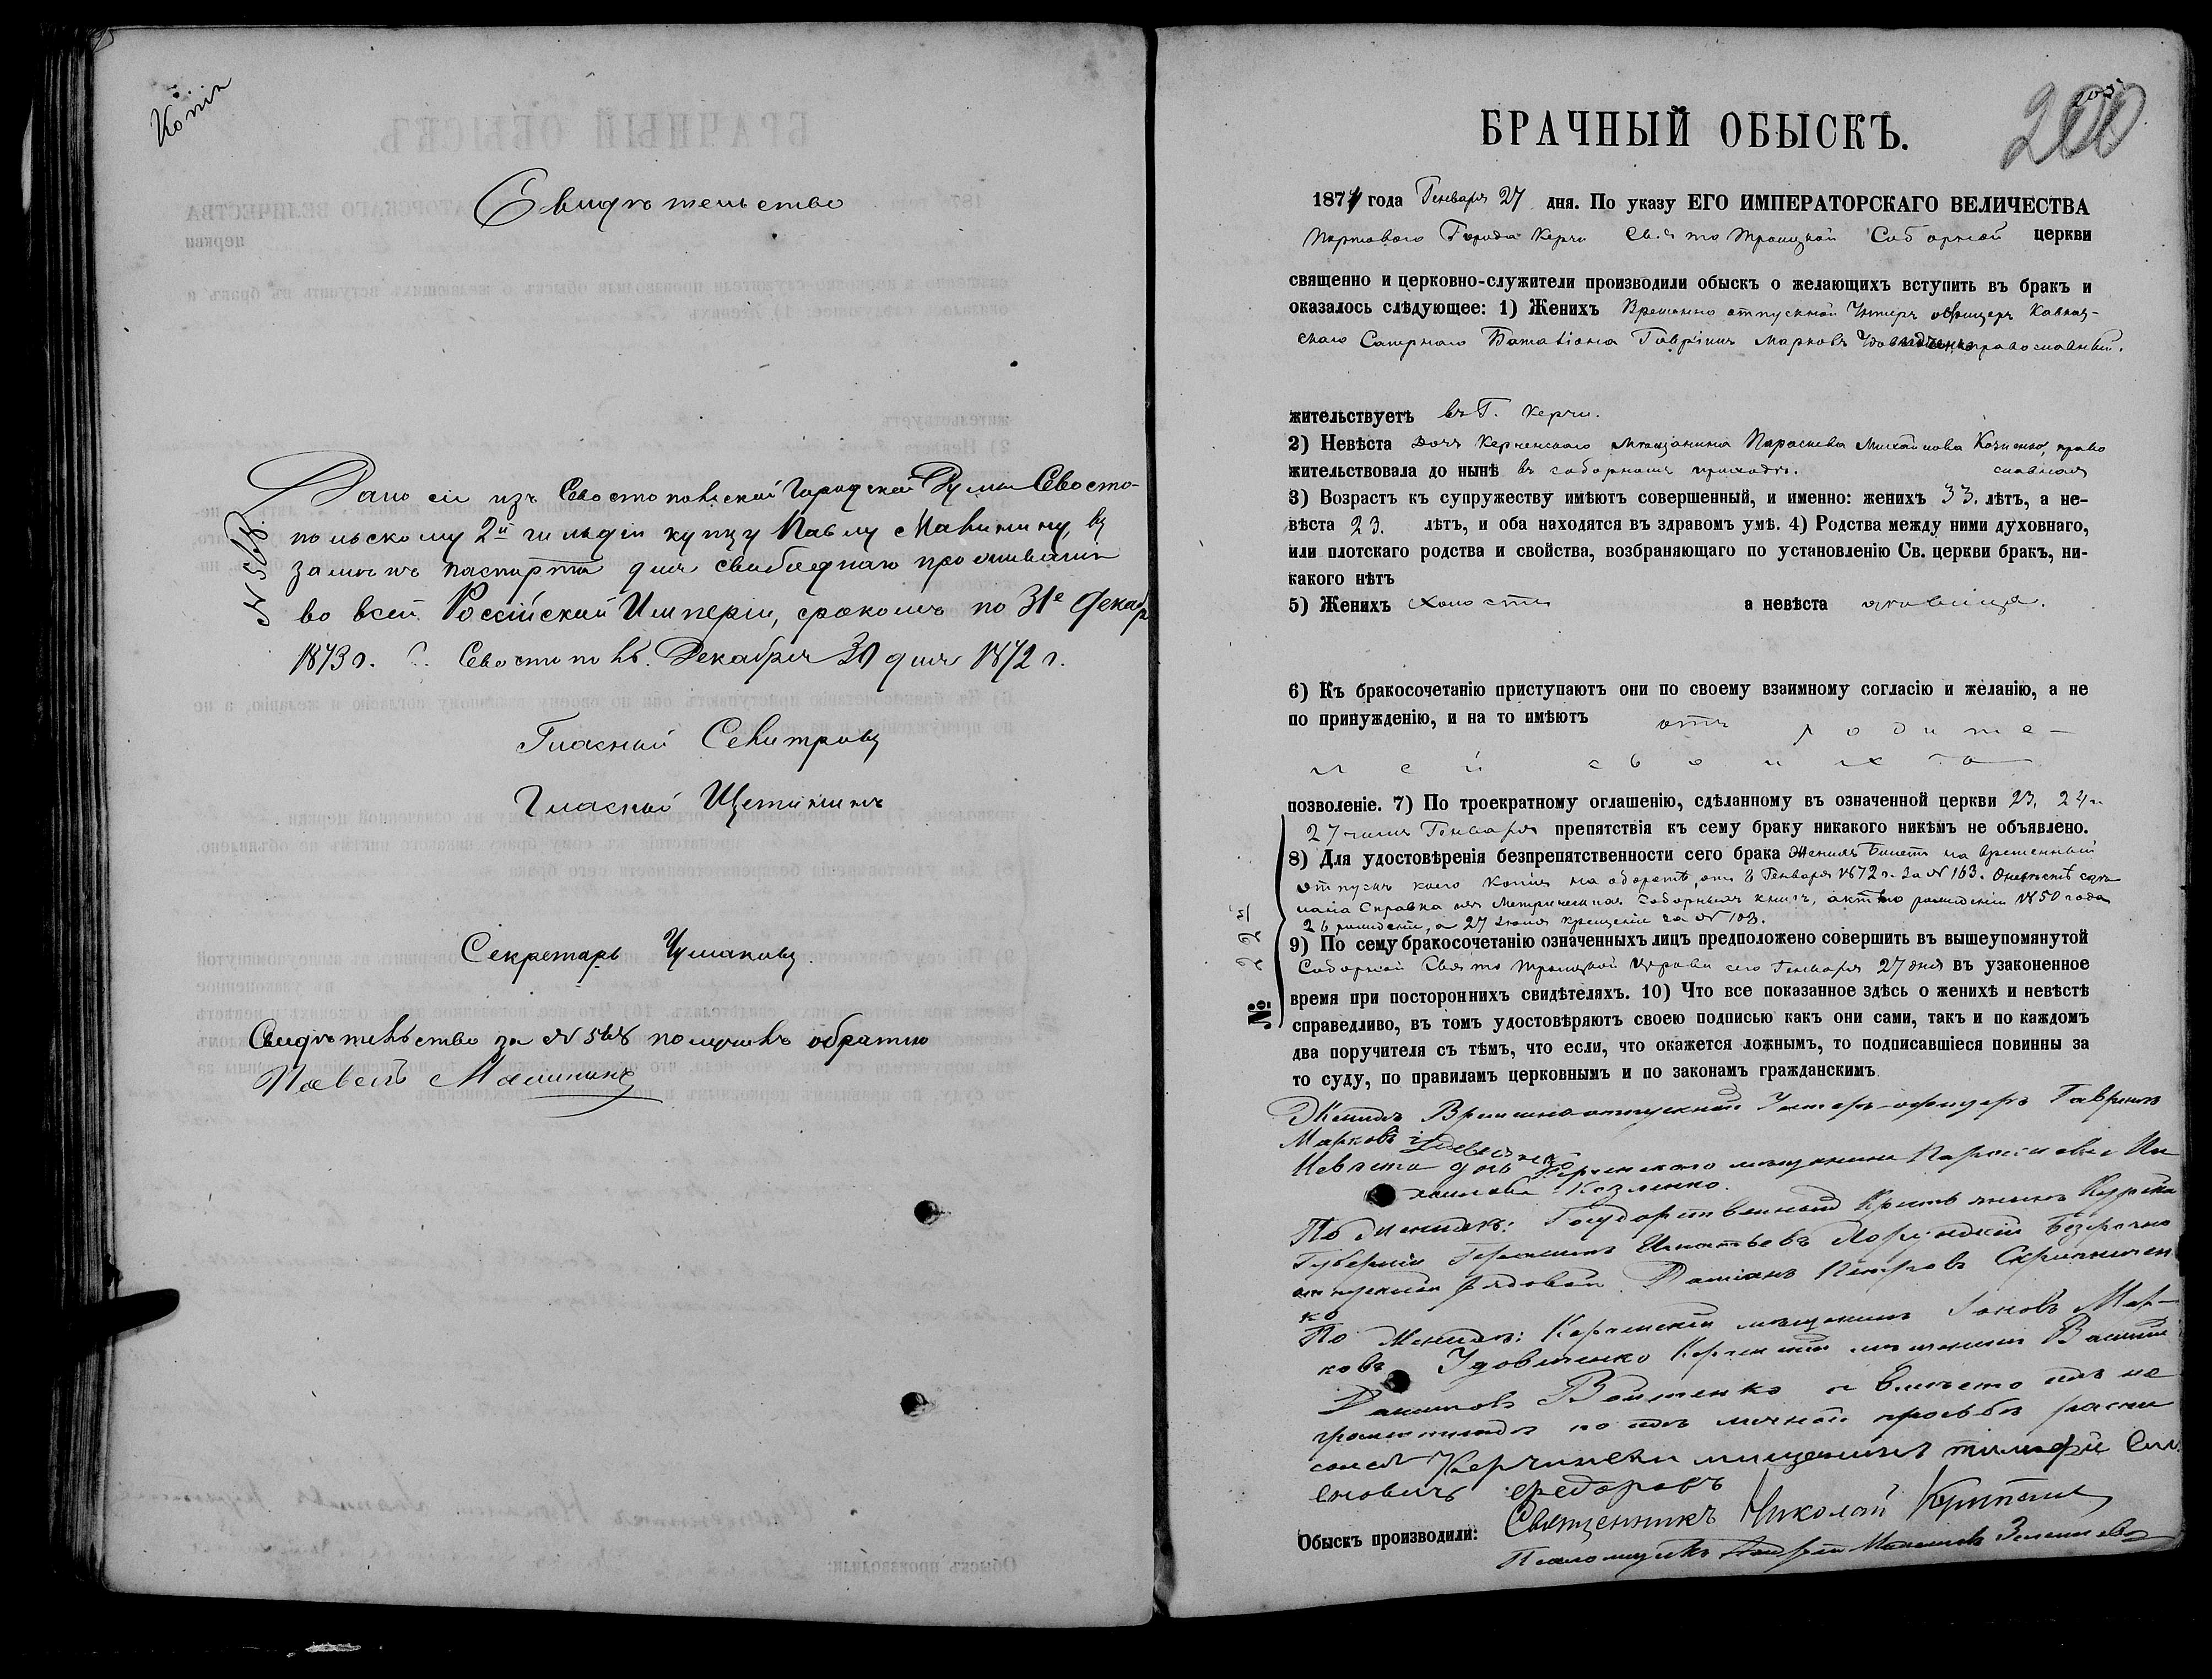 Копія
Свидѣтельство
№ 568
Дано сіе изъ Севастопольской Городской Думы Севасто-
польскому 2й гильдіи купцу Павлу Малинину, въ
замѣнъ паспорта для свободнаго проживанія
во всей Россійской Имперіи, срокомъ по 31е Декабр
1873 г. Г. Севастополь. Декабря 30 дня 1872 г.
Гласный Селитровъ
Гласный Щетининъ
Секретарь Чумаковъ
Свидѣтельство за № 568 получилъ обратно
Павелъ Малининъ
205
200
БРАЧНЫЙ ОБЫСКЪ.
1874 года Генваря 27 дня. По указу ЕГО ИМПЕРАТОРСКАГО ВЕЛИЧЕСТВА
Портоваго Города Керчи Свято Троицкой Соборной церкви
священно и церковно-служители производили обыскъ о желающихъ вступить въ бракъ и
оказалось слѣдующее: 1) Женихъ Временно отпускной Унтеръ офицеръ Кавказ-
скаго Сапернаго Баталіона Гавріилъ Марковъ православный.
жительствуетъ въ Г. Керчи.
2) Невѣста Дочь Керченскаго Мѣщанина Параскева Михайлова право
жительствовала до нынѣ въ соборномъ приходѣ. славная
3) Возрастъ къ супружеству имѣютъ совершенный, и именно: женихъ 33. лѣтъ, а не-
вѣста 23. лѣтъ, и оба находятся въ здравомъ умѣ. 4) Родства между ними духовнаго,
или плотскаго родства и свойства, возбраняющаго по установленію Св. церкви бракъ, ни-
какого нѣтъ
5) Женихъ холостъ а невѣста дѣвица.
6) Къ бракосочетанію приступаютъ они по своему взаимному согласію и желанію, а не
по принужденію, и на то имѣютъ отъ родите-
лей своихъ
позволеніе. 7) По троекратному оглашенію, сдѣланному въ означенной церкви 23, 24 и
27 числъ Генваря препятствія къ сему браку никакого никѣмъ не объявлено.
8) Для удостовѣренія безпрепятственности сего брака Женихъ Билетъ на временный
отпускъ коего копія на оборотѣ, отъ 8 Генваря 1872 г. за № 163. О невѣстѣ
справка изъ Метрическихъ Соборныхъ книгъ, рожденія 1850 года
26 рожденіе, а 27 Іюля крещеніе за № 103.
№ 22й
9) По сему бракосочетанію означенныхъ лицъ предположено совершить въ вышеупомянутой
Соборной Свято Троицкой Церкви сего Генваря 27 дня въ узаконенное
время при постороннихъ свидѣтеляхъ. 10) Что все показанное здѣсь о женихѣ и невѣстѣ
справедливо, въ томъ удостовѣряютъ своею подписью какъ они сами, такъ и по каждомъ
два поручителя съ тѣмъ, что если, что окажется ложнымъ, то подписавшіеся повинны за
то суду, по правиламъ церковнымъ и по законамъ гражданскимъ
Женихъ Временно-отпускной Унтеръ-офицеръ Гавріилъ
Марковъ
Невѣста дочь Керченскаго мѣщанина Параскева Ми
хаилова Козленко.
По женихѣ: Государственный Крестьянинъ Курской
Губерніи Герасимъ Игнатьевъ Безсрочно
отпускной рядовой Даміанъ Петровъ Скрипничен
ко
По Женихѣ: Керченскій мѣщанинъ Яковъ Мар-
ковъ Удовиченко Керченскій мѣщанинъ Василій
Даниловъ Войтенко а вмѣсто ихъ не
грамотныхъ по ихъ личной прозьбѣ распи
сался Керчински мищанинъ тимофѣ Сим
еновичъ Федоровъ
Обыскъ производили: Священникъ Николай
Псаломщикъ Андрей